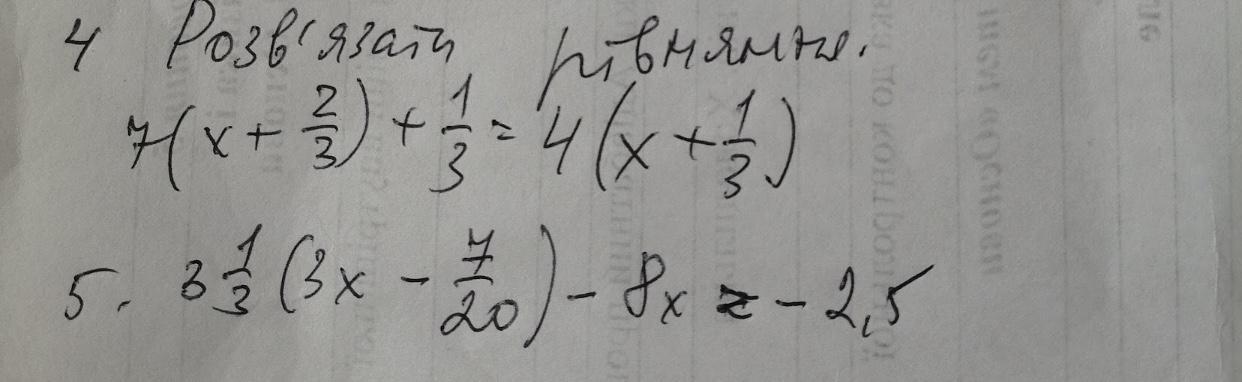 4 Розв'язати рівняння.
7(x + 2/3) + 1/3 = 4(x + 1/3)
5. 3 1/3 (3x - 7/20) - 8x = - 2,5